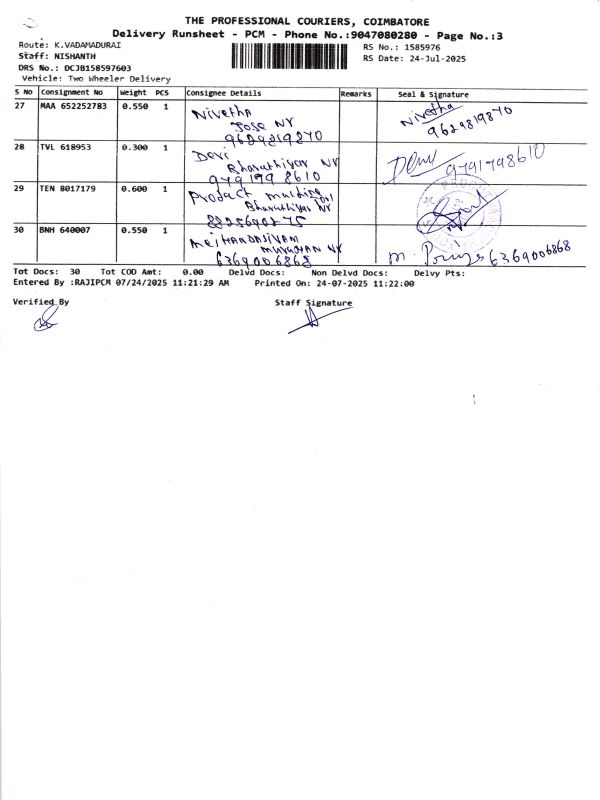 THE PROFESSIONAL COURIERS, COIMBATORE
Delivery Runsheet - PCM - Phone No.:9047080280 - Page No.:3
Route: K.VADAMADURAI
RS No.: 1585976
Staff: NISHANTH
RS Date: 24-Jul-2025
DRS No.: DCJB158597603
Vehicle: Two Wheeler Delivery
S No Consignment No Weight PCS Consignee Details Remarks Seal & Signature
27 MAA 652252783 0.550 1 Nivetha Nivetha
Jose Nr
9629819870 9629819870
28 TVL 618953 0.300 1 Devi Devi 9791798610
Bharathiyar Nr
9791798610
29 TEN 8017179 0.600 1 Product
Bharathiyar Nr
8825690275
30 BNH 640007 0.550 1 Meihandasivam
Murugan Nr
6369006868 m. 6369006868
Tot Docs: 30 Tot COD Amt: 0.00 Delvd Docs: Non Delvd Docs: Delvy Pts:
Entered By :RAJIPCM 07/24/2025 11:21:29 AM Printed On: 24-07-2025 11:22:00
Verified By Staff Signature